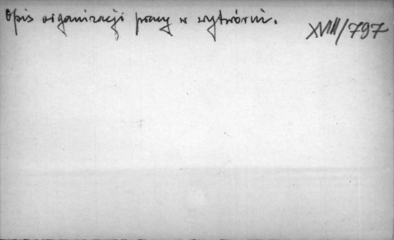 Opis organizacji pracy w wytwórni.
XVIII/797